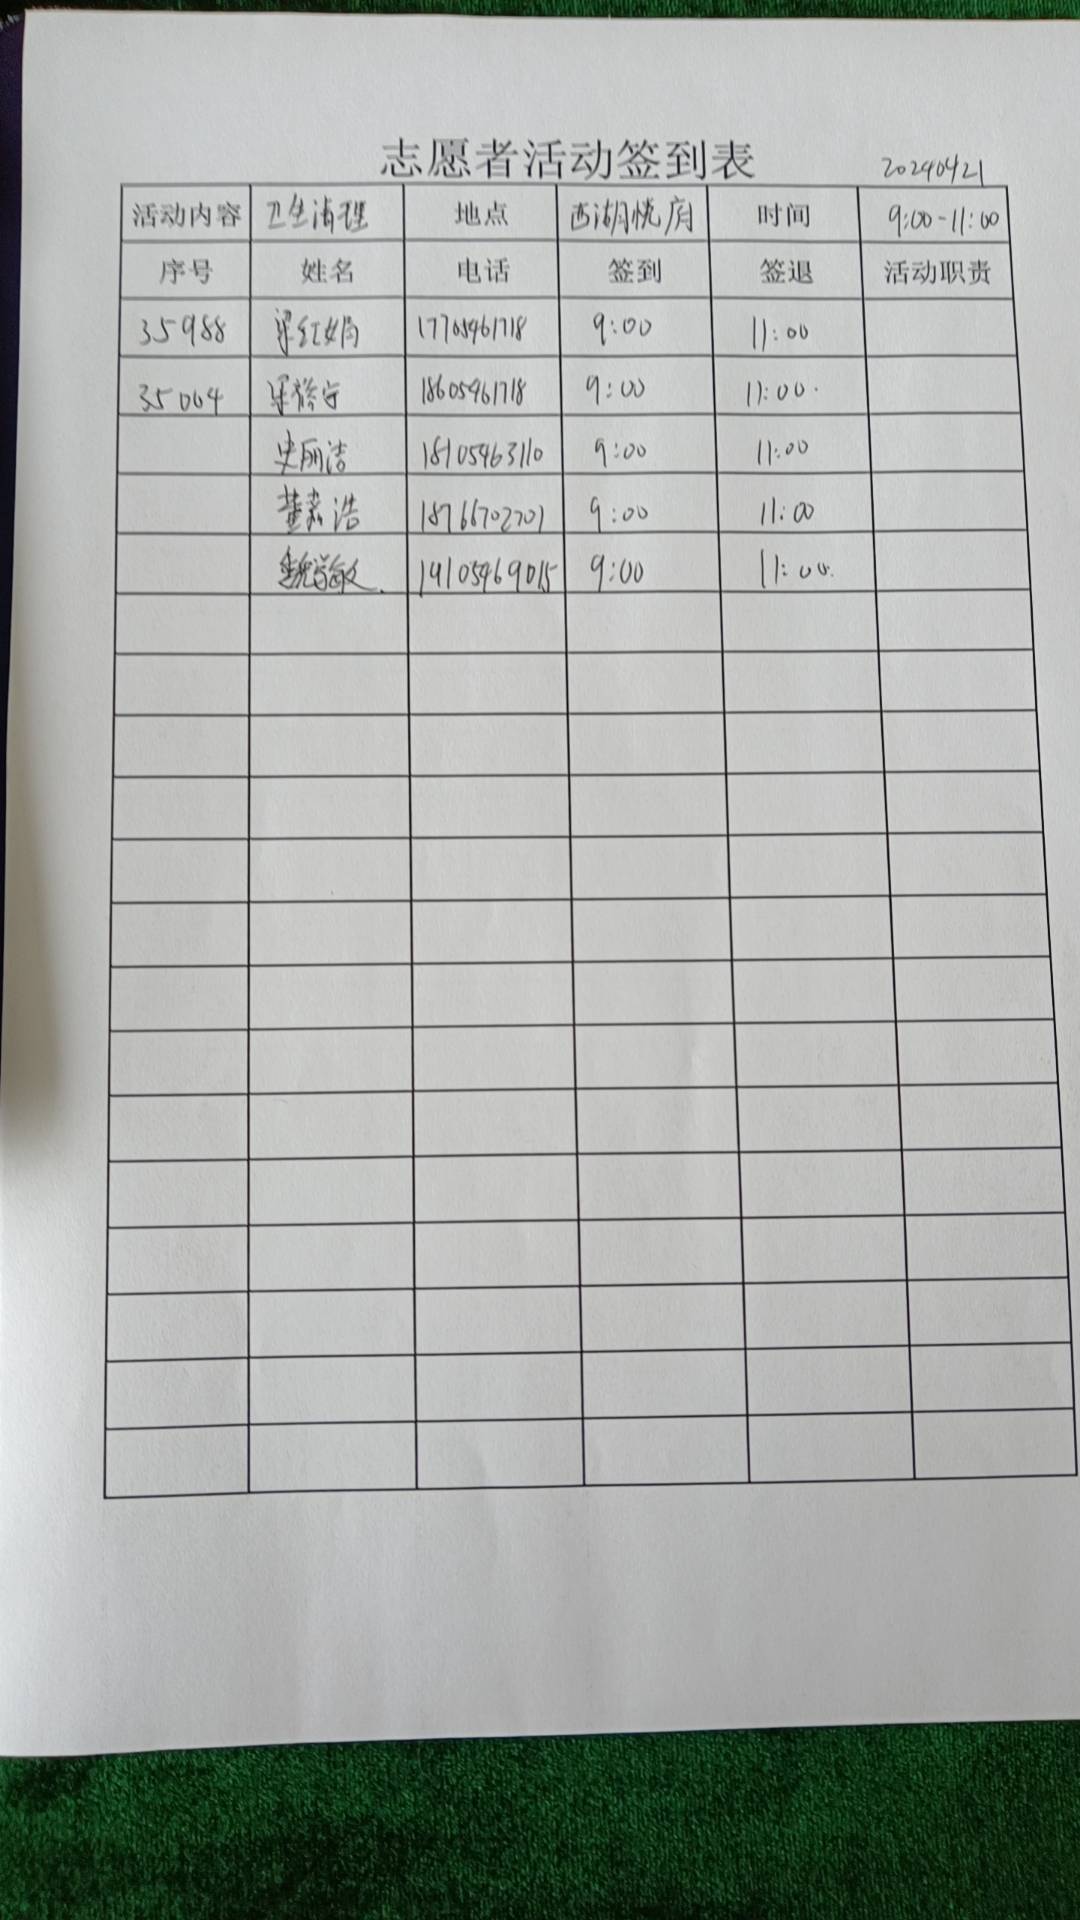 志愿者活动签到表 20240421
活动内容 卫生清理 地点 西湖悦府 时间 9:00-11:00
序号 姓名 电话 签到 签退 活动职责
35988 梁红娟 17705461718 9:00 11:00
35064 18605461718 9:00 11:00.
史丽洁 18105463110 9:00 11:00
董嘉浩 18766702701 9:00 11:00
魏学敏. 19105469015 9:00 11:00.